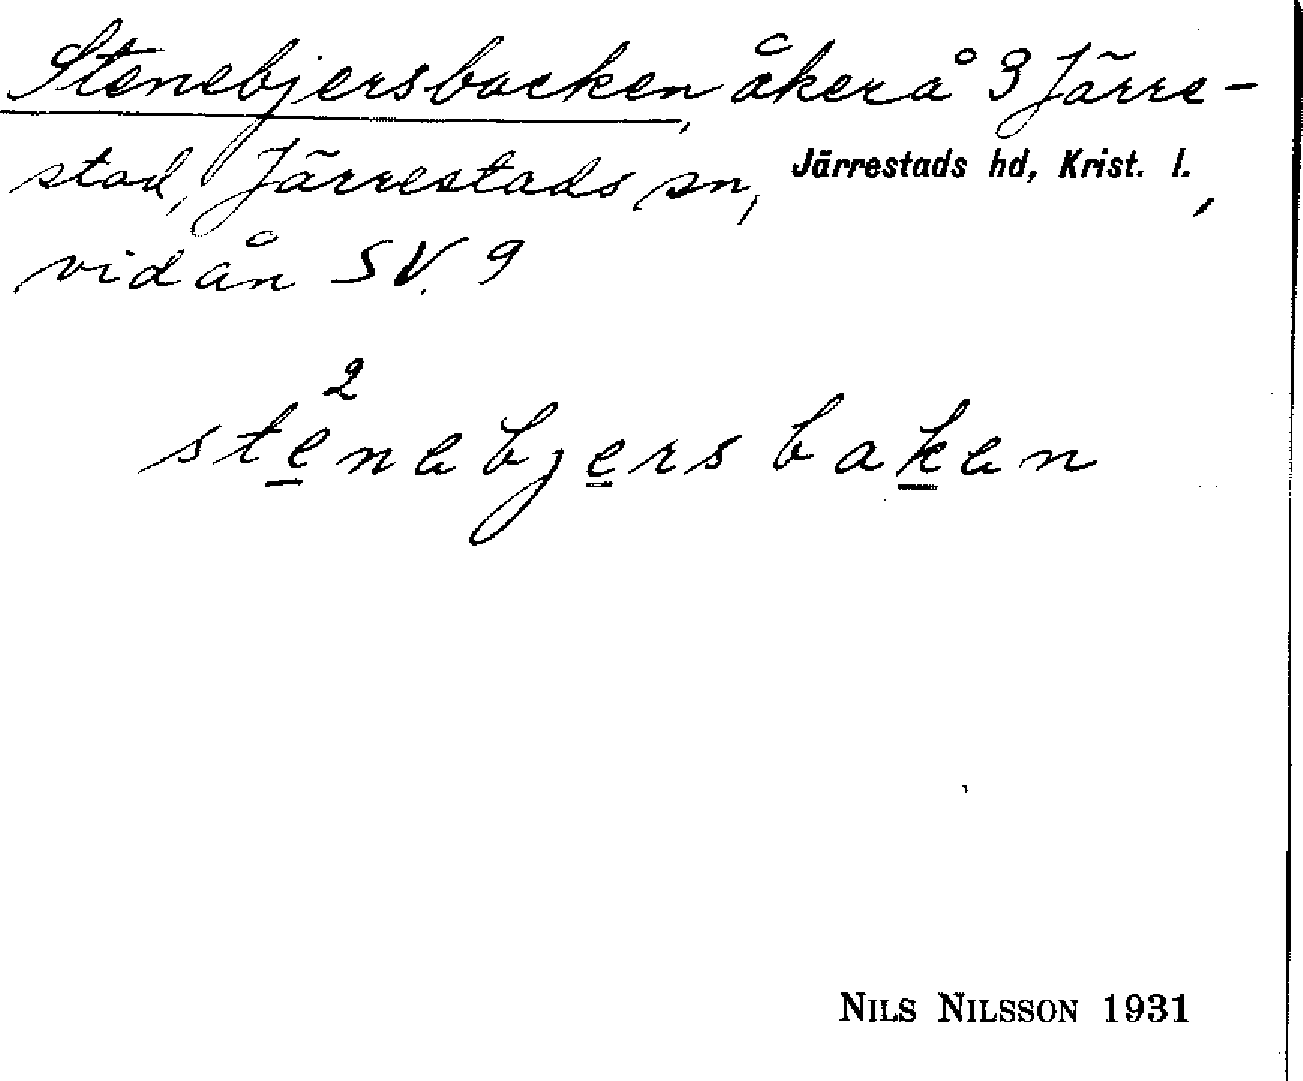 Stenebjersbacken, åker å 3 Järre-
stad, Järrestads sn, Järrestads hd, Krist. l.,
vid ån SV. 9
2
stenebjersbaken
NILS NILSSON 1931